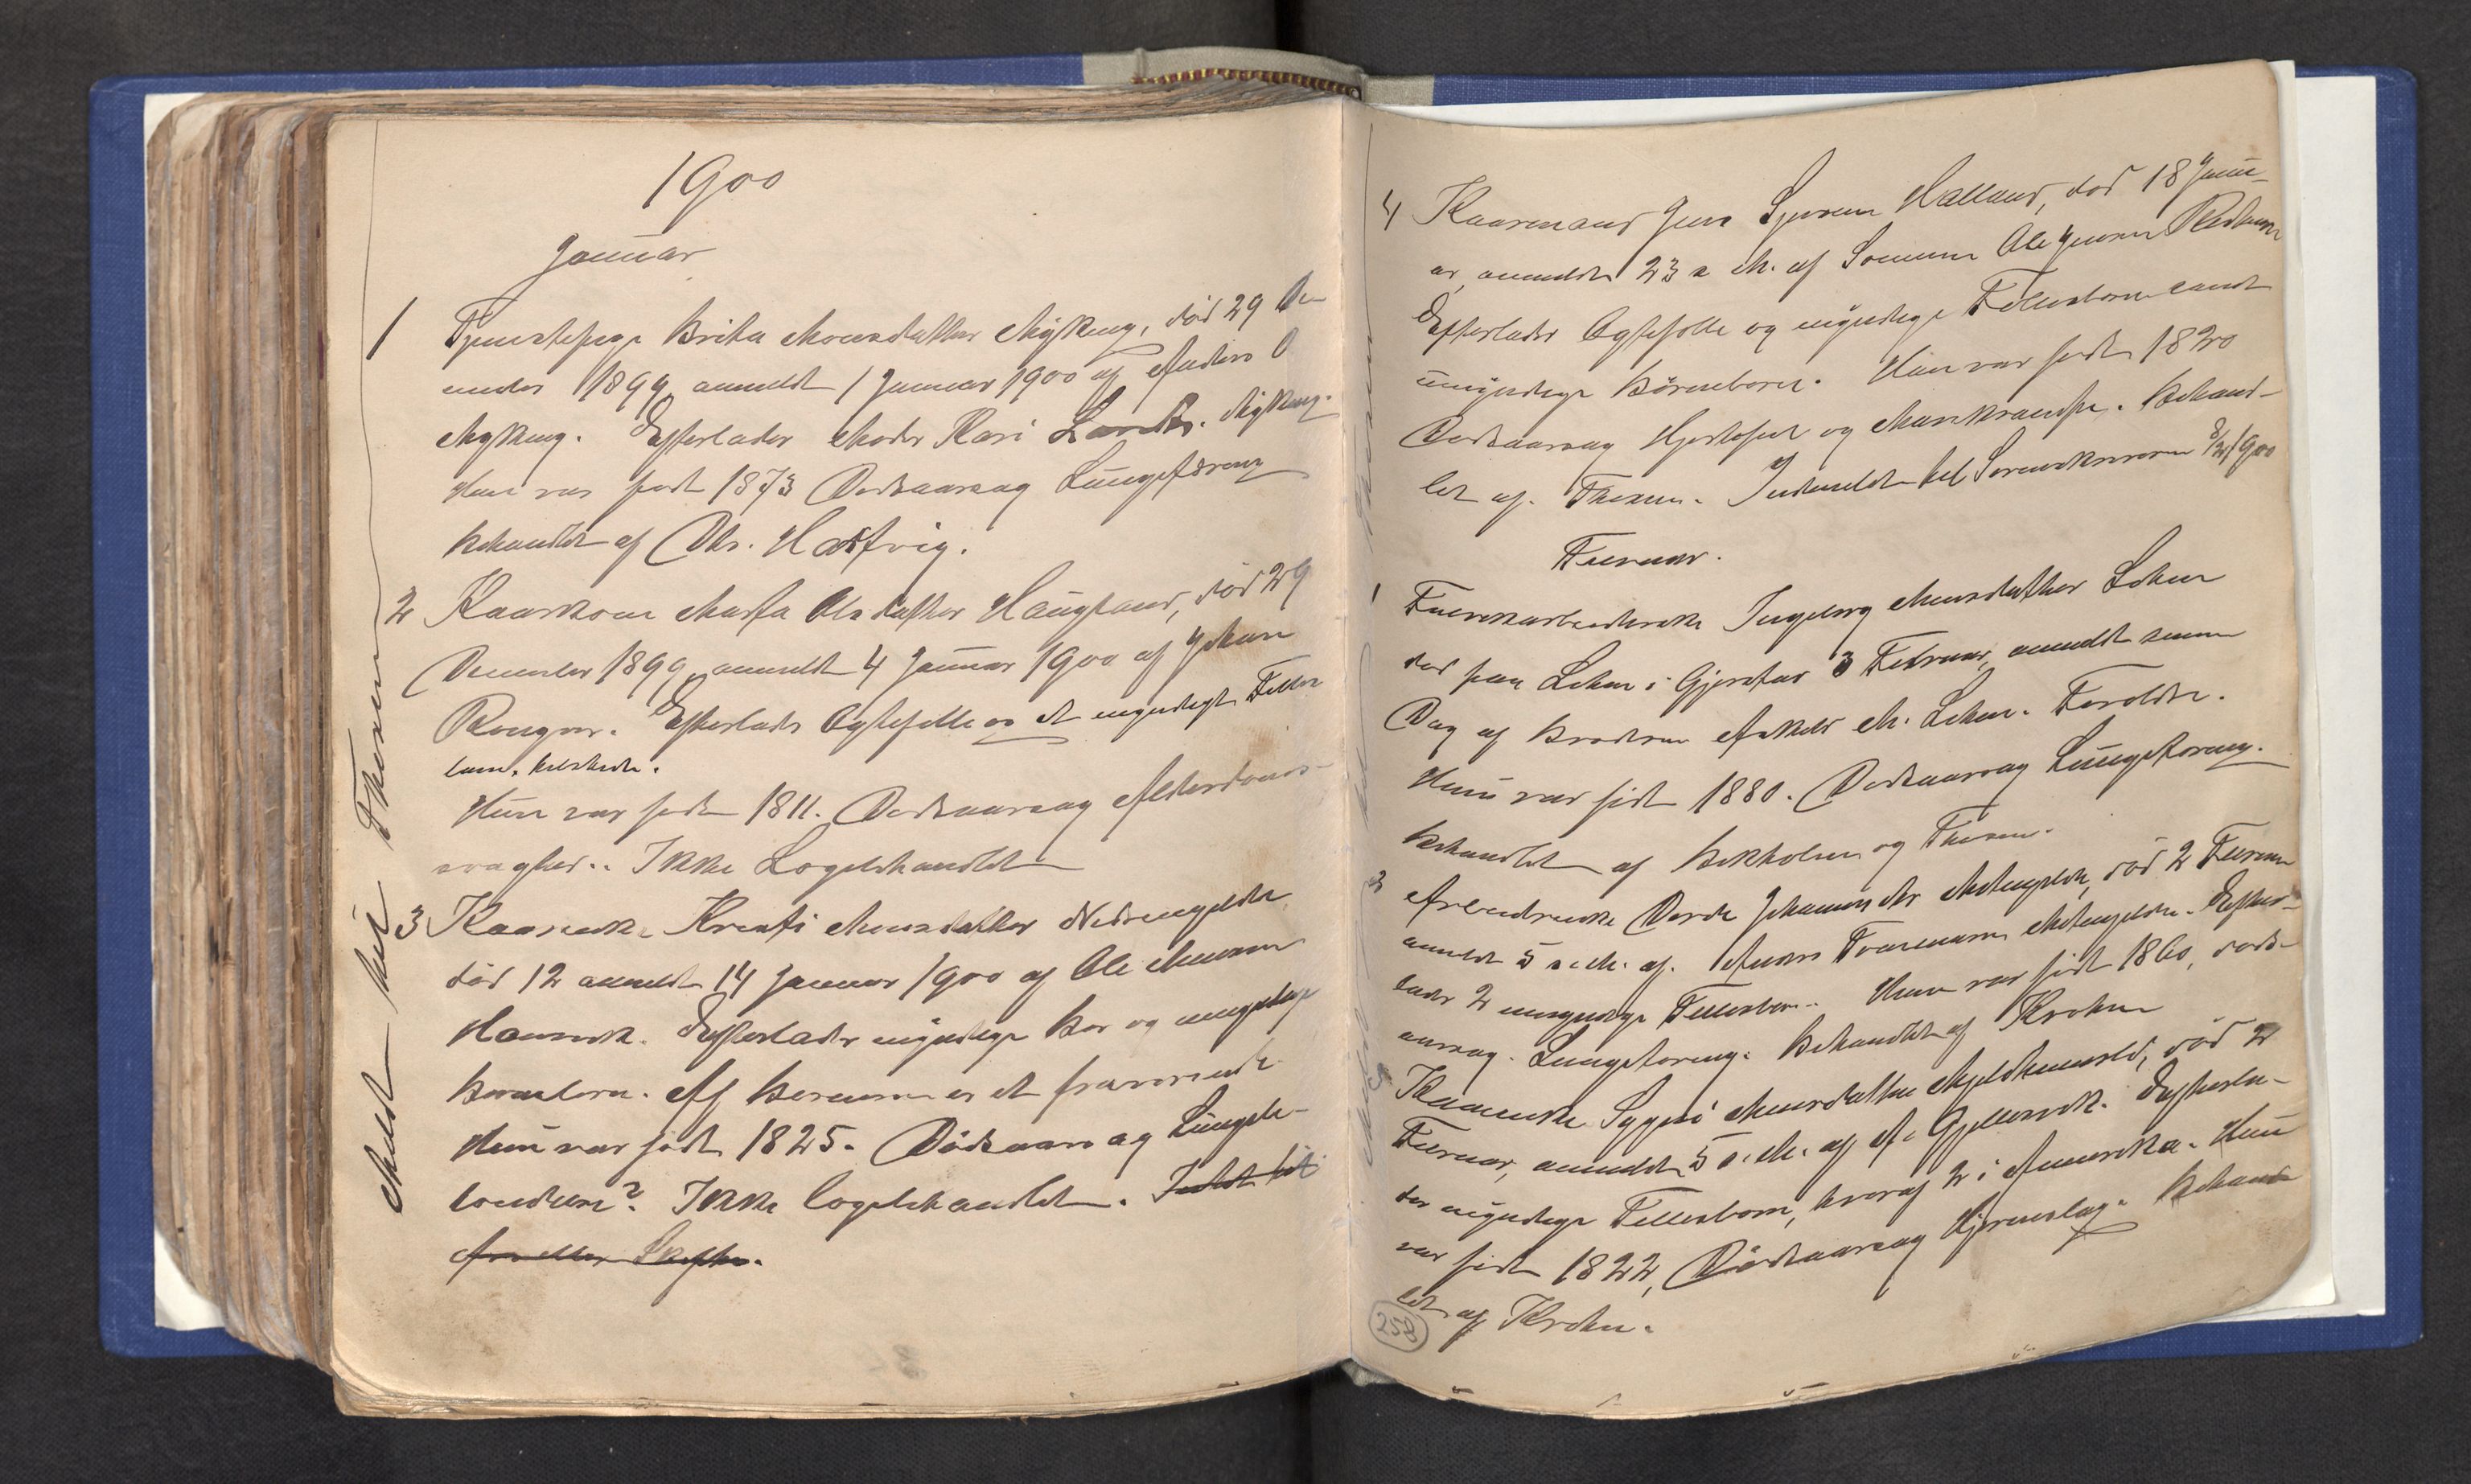 1900
Januar
1 Tjenestepige Brita Monsdatter Myking, død 29 De
cember 1899, anmeldt 1 Januar 1900 af Anders O
Myking. Efterlader Moder Kari Larsdr. Myking.
Hun var født 1873 Dødsaarsag Lungetæring
behandlet af Dr. Hartvig.
2 Kaarkone Marta Olsdatter Haugland, død 29
December 1899, anmeldt 4 Januar 1900 af Johan
Rongve. Efterlader Ægtefelle og et myndigt Felles
barn. tilstede.
Hun var født 1811. Dødsaarsag Alderdoms-
svaghed. Ikke Lægebehandlet
3 Kaarenke Kresti Monsdatter Nedrengelden
død 12 anmeldt 14 Januar 1900 af Ole Monsen
Hansvik. Efterlader myndige Børn og umyndige
Børnebørn. Af Børnene er et fraværende
Hun var født 1825. Dødsaarsag Lungebe-
tændelse? Ikke lægebehandlet. Indldt til
Skifte.
Meldt hid Thesen
4 Kaarmand Jens Halland, død 18 Janu-
ar, anmeldt 23 s. M. af Sønnen Ole Jensen
Efterlader Ægtefelle og myndige Fellesbørn samt
umyndige Børnebørn. Han var født 1820
Dødsaarsag Hjertefeil og Mavekrampe. Behand-
let af Thesen. Indmeldt til Sorenskriveren 8/2 1900
Februar.
1 Fabrikarbeiderske Ingeborg Monsdatter Loken
død paa Loken i Gjerstad 3 Februar, anmeldt samme
Dag af Broderen Askeld M. Loken. Forældre.
Hun var født 1880. Dødsaarsag Lungetæring.
Behandlet af Birkholm og Thesen.
2 Arbeiderenke Dorde Johannesdr Mitengelden, død 2 Februar
anmeldt 5 s. M. af Anders Mitengelden. Efter-
lader 2 umyndige Fellesbørn. Hun var født 1860, døds-
aarsag. Lungetæring. Behandlet af Krohn
Kaarenke Monsdatter Mjeldhusvold, død 2
Februar, anmeldt 5 s. M. af A. Gjellesvik. Efterla-
der myndige Fellesbørn, hvoraf 2 i Amerika. Hun
var født 1822, Dødsaarsag Hjerneslag. Behand
let af Krohn.
258